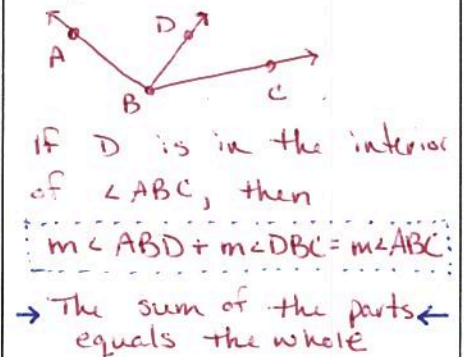 A
D
B
C
If D is in the interior
of ∠ABC, then
m∠ABD + m∠DBC = m∠ABC
→ The sum of the parts ←
equals the whole